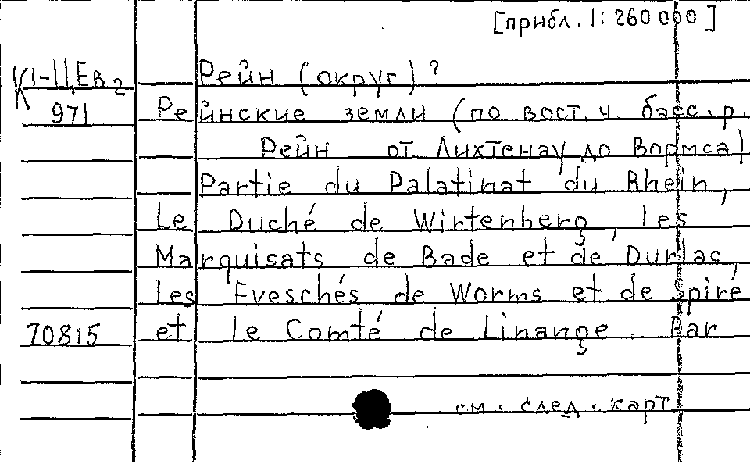 [прибл. 1:260000]
К1-II,Ев2
971
Рейн (округ)?
Рейнские земли (по вост. ч. басс. р.
Рейн от Лихтенау до Вормса)
Partie du Palatinat du Rhein,
Le Duché de Wirtenberg, les
Marquisats de Bade et de Durlac,
les Eveschés de Worms et de Spire
70815
et le Comté de Linange. Par
см. след. карт